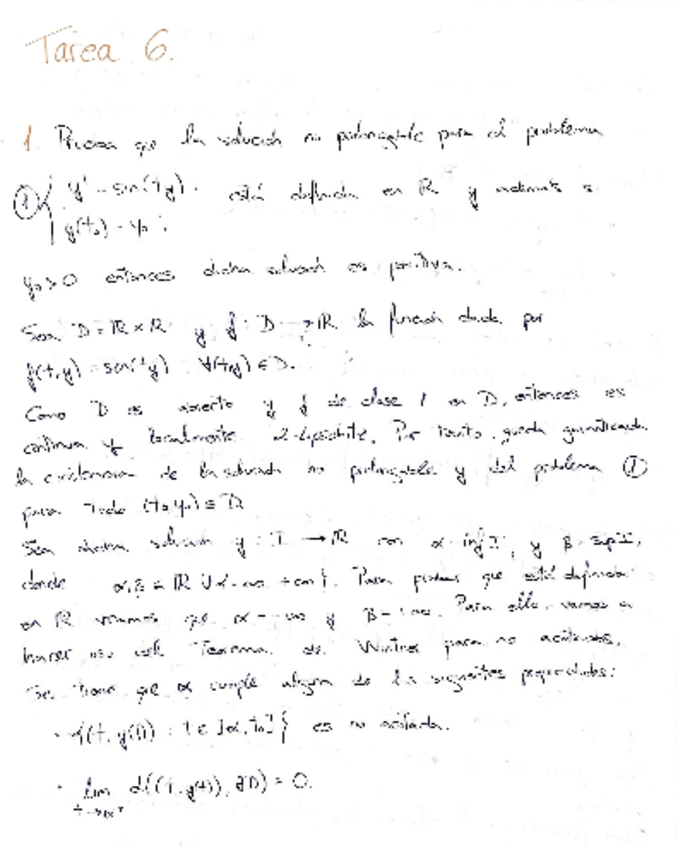 Tarea 6.
1. Prueba que la solución no prolongable para el problema
① { y' = sin(ty). está definida en R y además si
y(t₀) = y₀.
y₀ > 0 entonces dicha solución es positiva.
Sea D = R × R y f : D → R la función dada por
f(t,y) = sen(ty) ∀(t,y) ∈ D.
Como D es abierto y f de clase 1 en D, entonces es
continua y localmente 2-lipschitz. Por tanto, queda garantizada
la existencia de la solución no prolongable y del problema ①
para todo (t₀,y₀) ∈ D
Sea dicha solución y : I → R con α = inf I, y β = sup I,
donde α, β ∈ R ∪ {-∞, +∞}. Para probar que está definida
en R veamos que α = -∞ y β = +∞. Para ello, vamos a
hacer uso del Teorema de Wintner para no acotados.
Se tiene que α cumple alguna de las siguientes propiedades:
· {(t, y(t)) : t ∈ ]α, t₀]} es no acotada.
· lim d((t, y(t)), ∂D) = 0.
t→α⁺